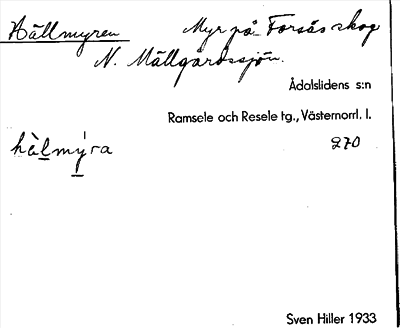 Hällmyren Myr på Forsås skog
N. Mällgårdssjön.
Ådalslidens s:n
Ramsele och Resele tg., Västernorrl. l.
hä̀lmýra 270
Sven Hiller 1933